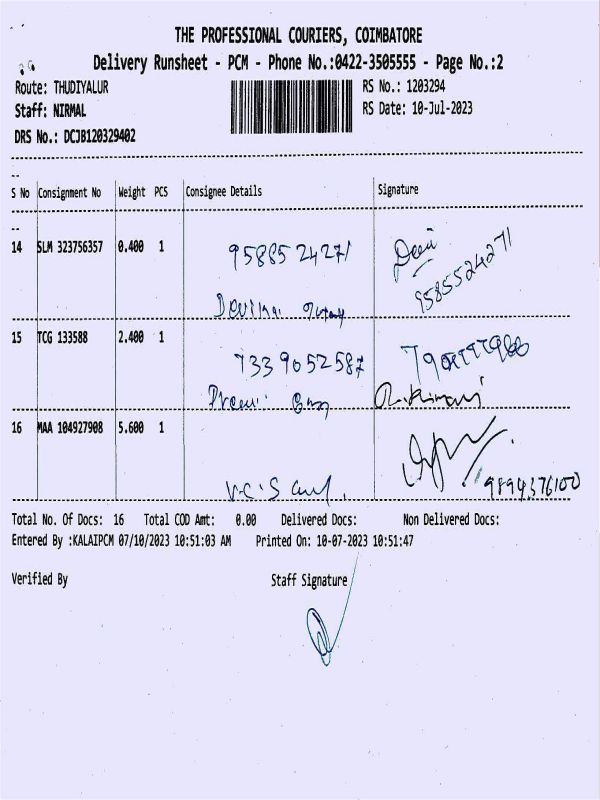 THE PROFESSIONAL COURIERS, COIMBATORE
Delivery Runsheet - PCM - Phone No.:0422-3505555 - Page No.:2
Route: THUDIYALUR
RS No.: 1203294
Staff: NIRMAL
RS Date: 10-Jul-2023
DRS No.: DCJB120329402
S No Consignment No Weight PCS Consignee Details Signature
14 SLM 323756357 0.400 1 9588524271
9585524271
15 TCG 133588 2.400 1 7339052587
16 MAA 104927908 5.600 1
9894376100
Total No. Of Docs: 16 Total COD Amt: 0.00 Delivered Docs: Non Delivered Docs:
Entered By :KALAIPCM 07/10/2023 10:51:03 AM Printed On: 10-07-2023 10:51:47
Verified By Staff Signature